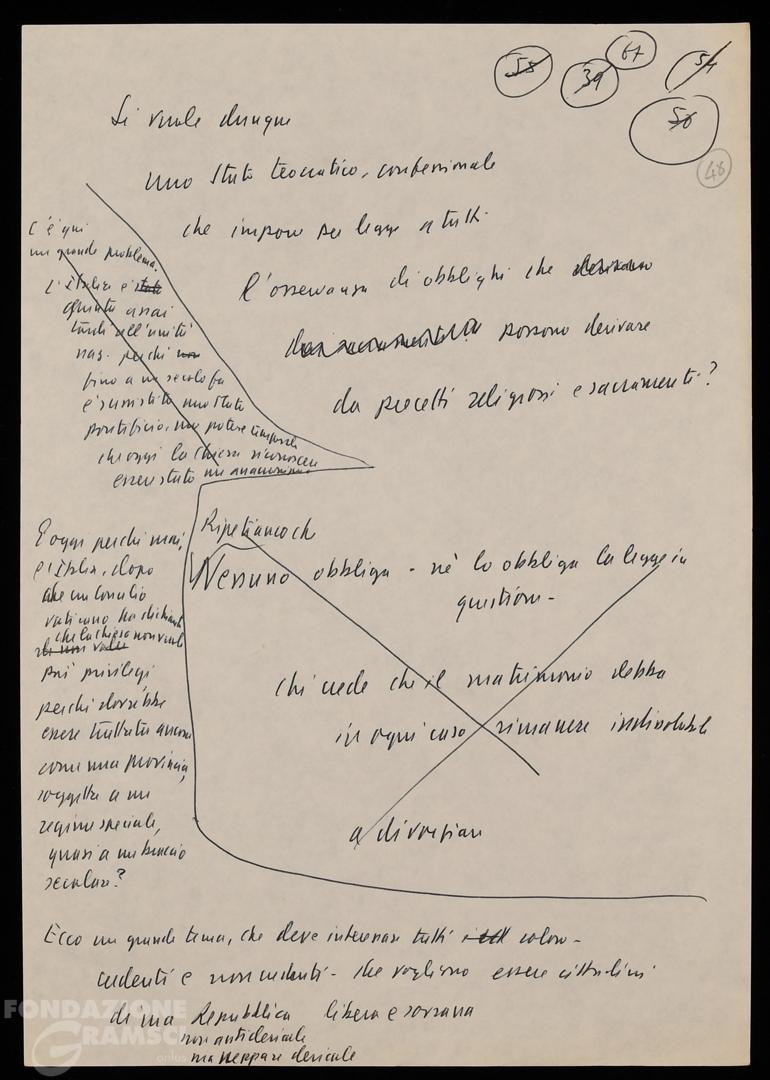 58
39
67
54
56
48
Si vuole dunque
uno Stato teocratico, confessionale
che impone per legge a tutti
l'osservanza di obblighi che derivano
dai sacramenti possono derivare
da precetti religiosi e sacramenti?
C'è qui
un grande problema.
L'Italia è stata
giunta assai
tardi all'unità
naz. perché non
fino a un secolo fa
è sussistito uno Stato
pontificio, un potere temporale
che oggi la Chiesa riconosce
essere stato un anacronismo
Ripetiamo che
Nessuno obbliga - né lo obbliga la legge in
questione -
chi crede che il matrimonio debba
in ogni caso rimanere indissolubile
a divorziare
E oggi perché mai,
l'Italia, dopo
che un Concilio
vaticano ha dichiarato
che la chiesa non vuole
di non vuole
più privilegi
perché dovrebbe
essere trattata ancora
come una provincia,
soggetta a un
regime speciale,
quasi a un braccio
secolare?
Ecco un grande tema, che deve interessare tutti coloro -
credenti e non credenti - che vogliono essere cittadini
di una Repubblica libera e sovrana
non anticlericale
ma neppure clericale
FONDAZIONE
GRAMSCI
onlus